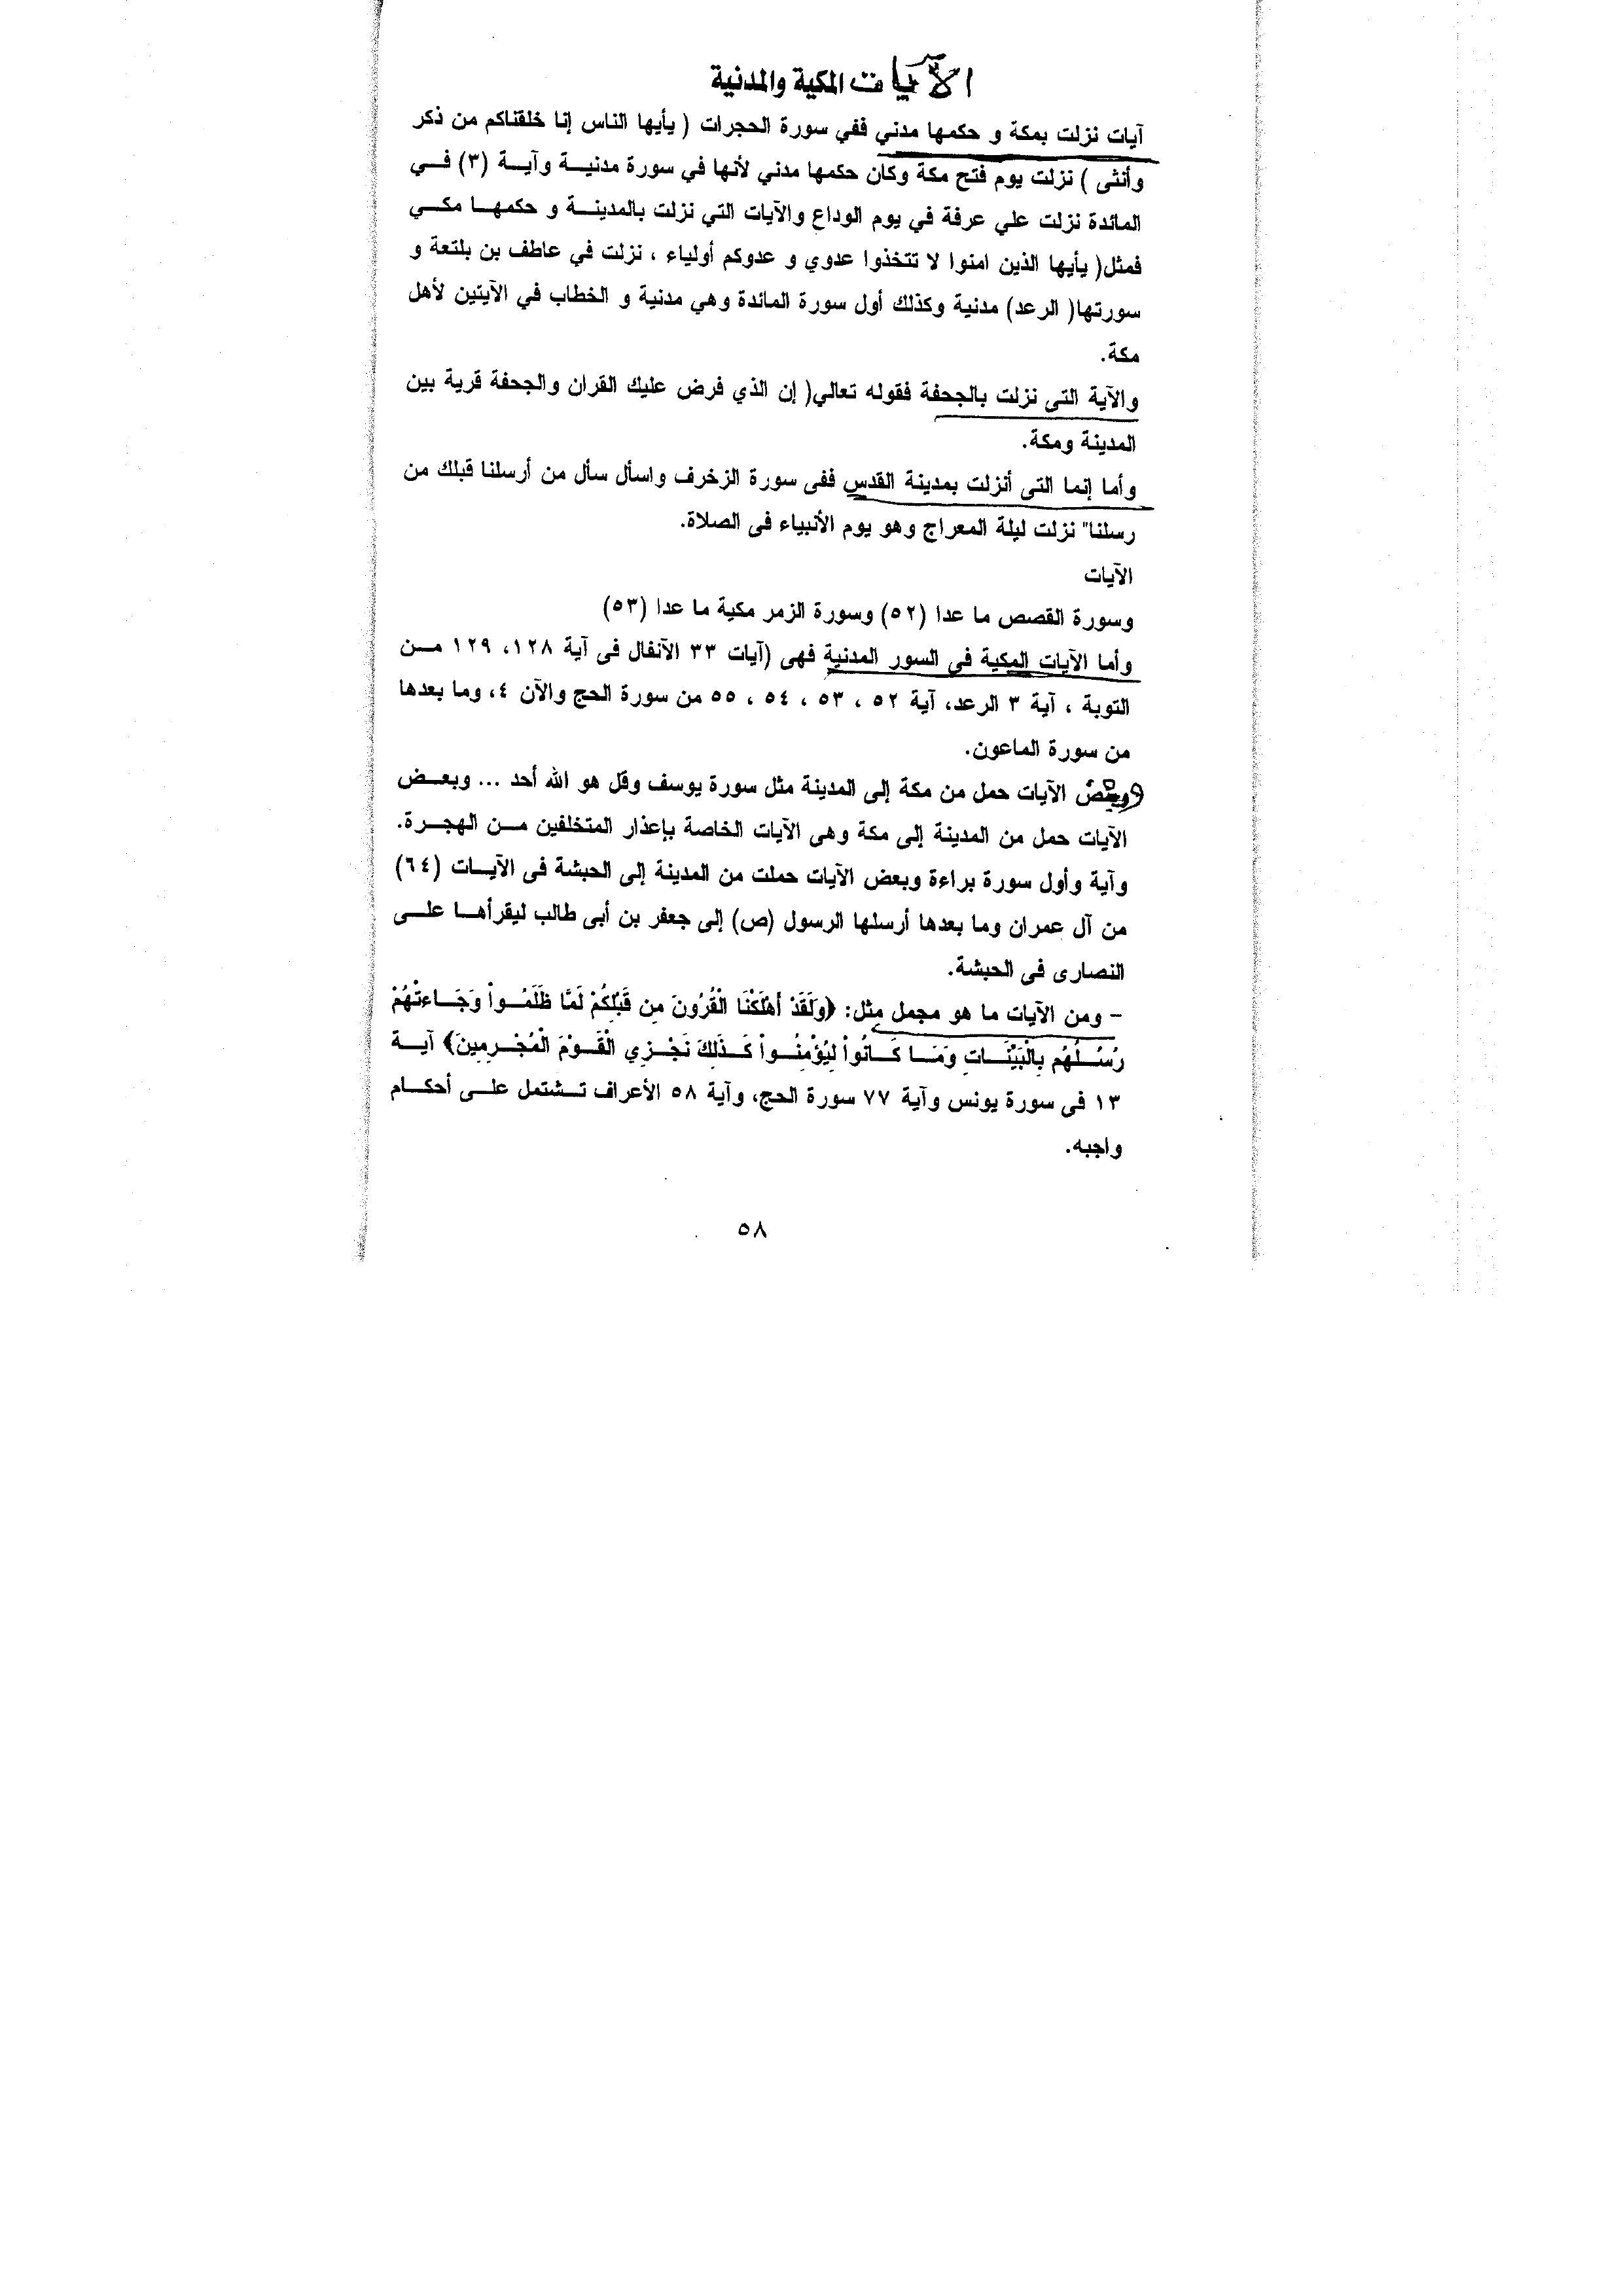 الآيات المكية والمدنية
آيات نزلت بمكة و حكمها مدني ففي سورة الحجرات ( يأيها الناس إنا خلقناكم من ذكر
وأنثى ) نزلت يوم فتح مكة وكان حكمها مدني لأنها في سورة مدنية وآية (٣) في
المائدة نزلت علي عرفة في يوم الوداع والآيات التي نزلت بالمدينة و حكمها مكي
فمثل( يأيها الذين امنوا لا تتخذوا عدوي و عدوكم أولياء ، نزلت في عاطف بن بلتعة و
سورتها( الرعد) مدنية وكذلك أول سورة المائدة وهي مدنية و الخطاب في الآيتين لأهل
مكة.
والآية التى نزلت بالجحفة فقوله تعالي( إن الذي فرض عليك القران والجحفة قرية بين
المدينة ومكة.
وأما إنما التى أنزلت بمدينة القدس ففى سورة الزخرف واسأل سأل من أرسلنا قبلك من
رسلنا" نزلت ليلة المعراج وهو يوم الأنبياء فى الصلاة.
الآيات
وسورة القصص ما عدا (٥٢) وسورة الزمر مكية ما عدا (٥٣)
وأما الآيات المكية فى السور المدنية فهى (آيات ٣٣ الآنفال فى آية ١٢٨، ١٢٩ من
التوبة ، آية ٣ الرعد، آية ٥٢ ، ٥٣ ، ٥٤ ، ٥٥ من سورة الحج والآن ٤، وما بعدها
من سورة الماعون.
وبعض الآيات حمل من مكة إلى المدينة مثل سورة يوسف وقل هو الله أحد ... وبعض
الآيات حمل من المدينة إلى مكة وهى الآيات الخاصة بإعذار المتخلفين من الهجرة.
وآية وأول سورة براءة وبعض الآيات حملت من المدينة إلى الحبشة فى الآيات (٦٤)
من آل عمران وما بعدها أرسلها الرسول (ص) إلى جعفر بن أبى طالب ليقرأها على
النصارى فى الحبشة.
– ومن الآيات ما هو مجمل مثل: ﴿وَلَقَدْ أَهْلَكْنَا الْقُرُونَ مِن قَبْلِكُمْ لَمَّا ظَلَمُواْ وَجَاءتْهُمْ
رُسُلُهُم بِالْبَيِّنَاتِ وَمَا كَانُواْ لِيُؤْمِنُواْ كَذَلِكَ نَجْزِي الْقَوْمَ الْمُجْرِمِينَ﴾ آية
١٣ فى سورة يونس وآية ٧٧ سورة الحج، وآية ٥٨ الأعراف تشتمل على أحكام
واجبه.
٥٨